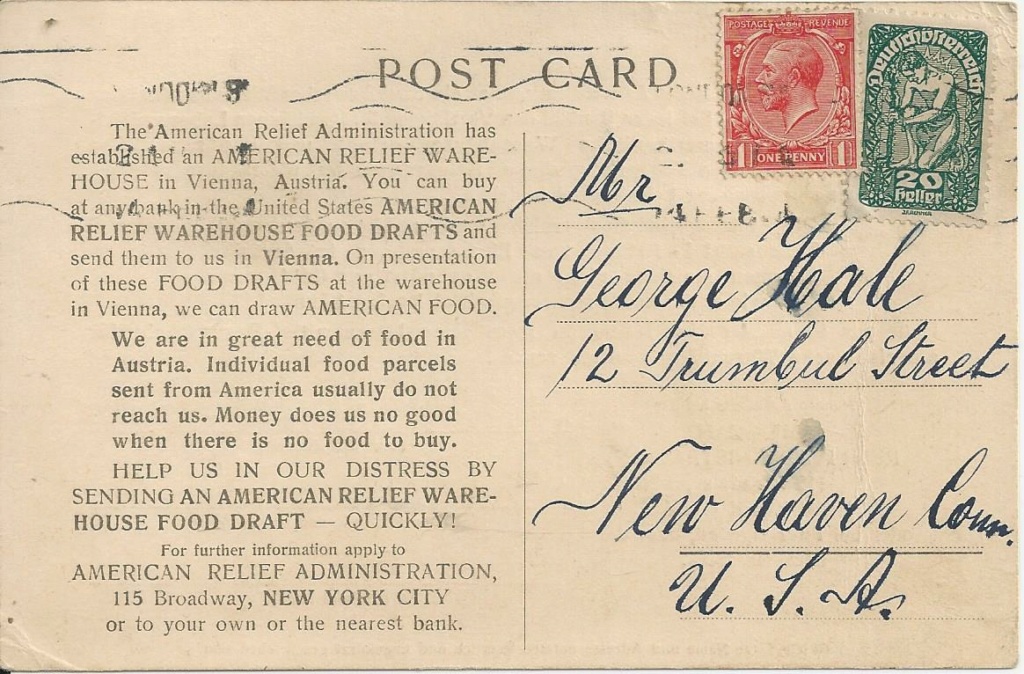 POST CARD
The American Relief Administration has
established an AMERICAN RELIEF WARE-
HOUSE in Vienna, Austria. You can buy
at any bank in the United States AMERICAN
RELIEF WAREHOUSE FOOD DRAFTS and
send them to us in Vienna. On presentation
of these FOOD DRAFTS at the warehouse
in Vienna, we can draw AMERICAN FOOD.
We are in great need of food in
Austria. Individual food parcels
sent from America usually do not
reach us. Money does us no good
when there is no food to buy.
HELP US IN OUR DISTRESS BY
SENDING AN AMERICAN RELIEF WARE-
HOUSE FOOD DRAFT — QUICKLY!
For further information apply to
AMERICAN RELIEF ADMINISTRATION,
115 Broadway, NEW YORK CITY
or to your own or the nearest bank.
POSTAGE REVENUE
1 ONE PENNY 1
Deutschösterreich
20
Heller
Mr
George Hale
12 Trumbul Street
New Haven Conn.
U. S. A.